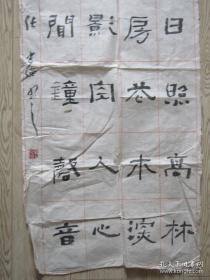 日照高林
房花木深
影空人心
聞鐘聲音